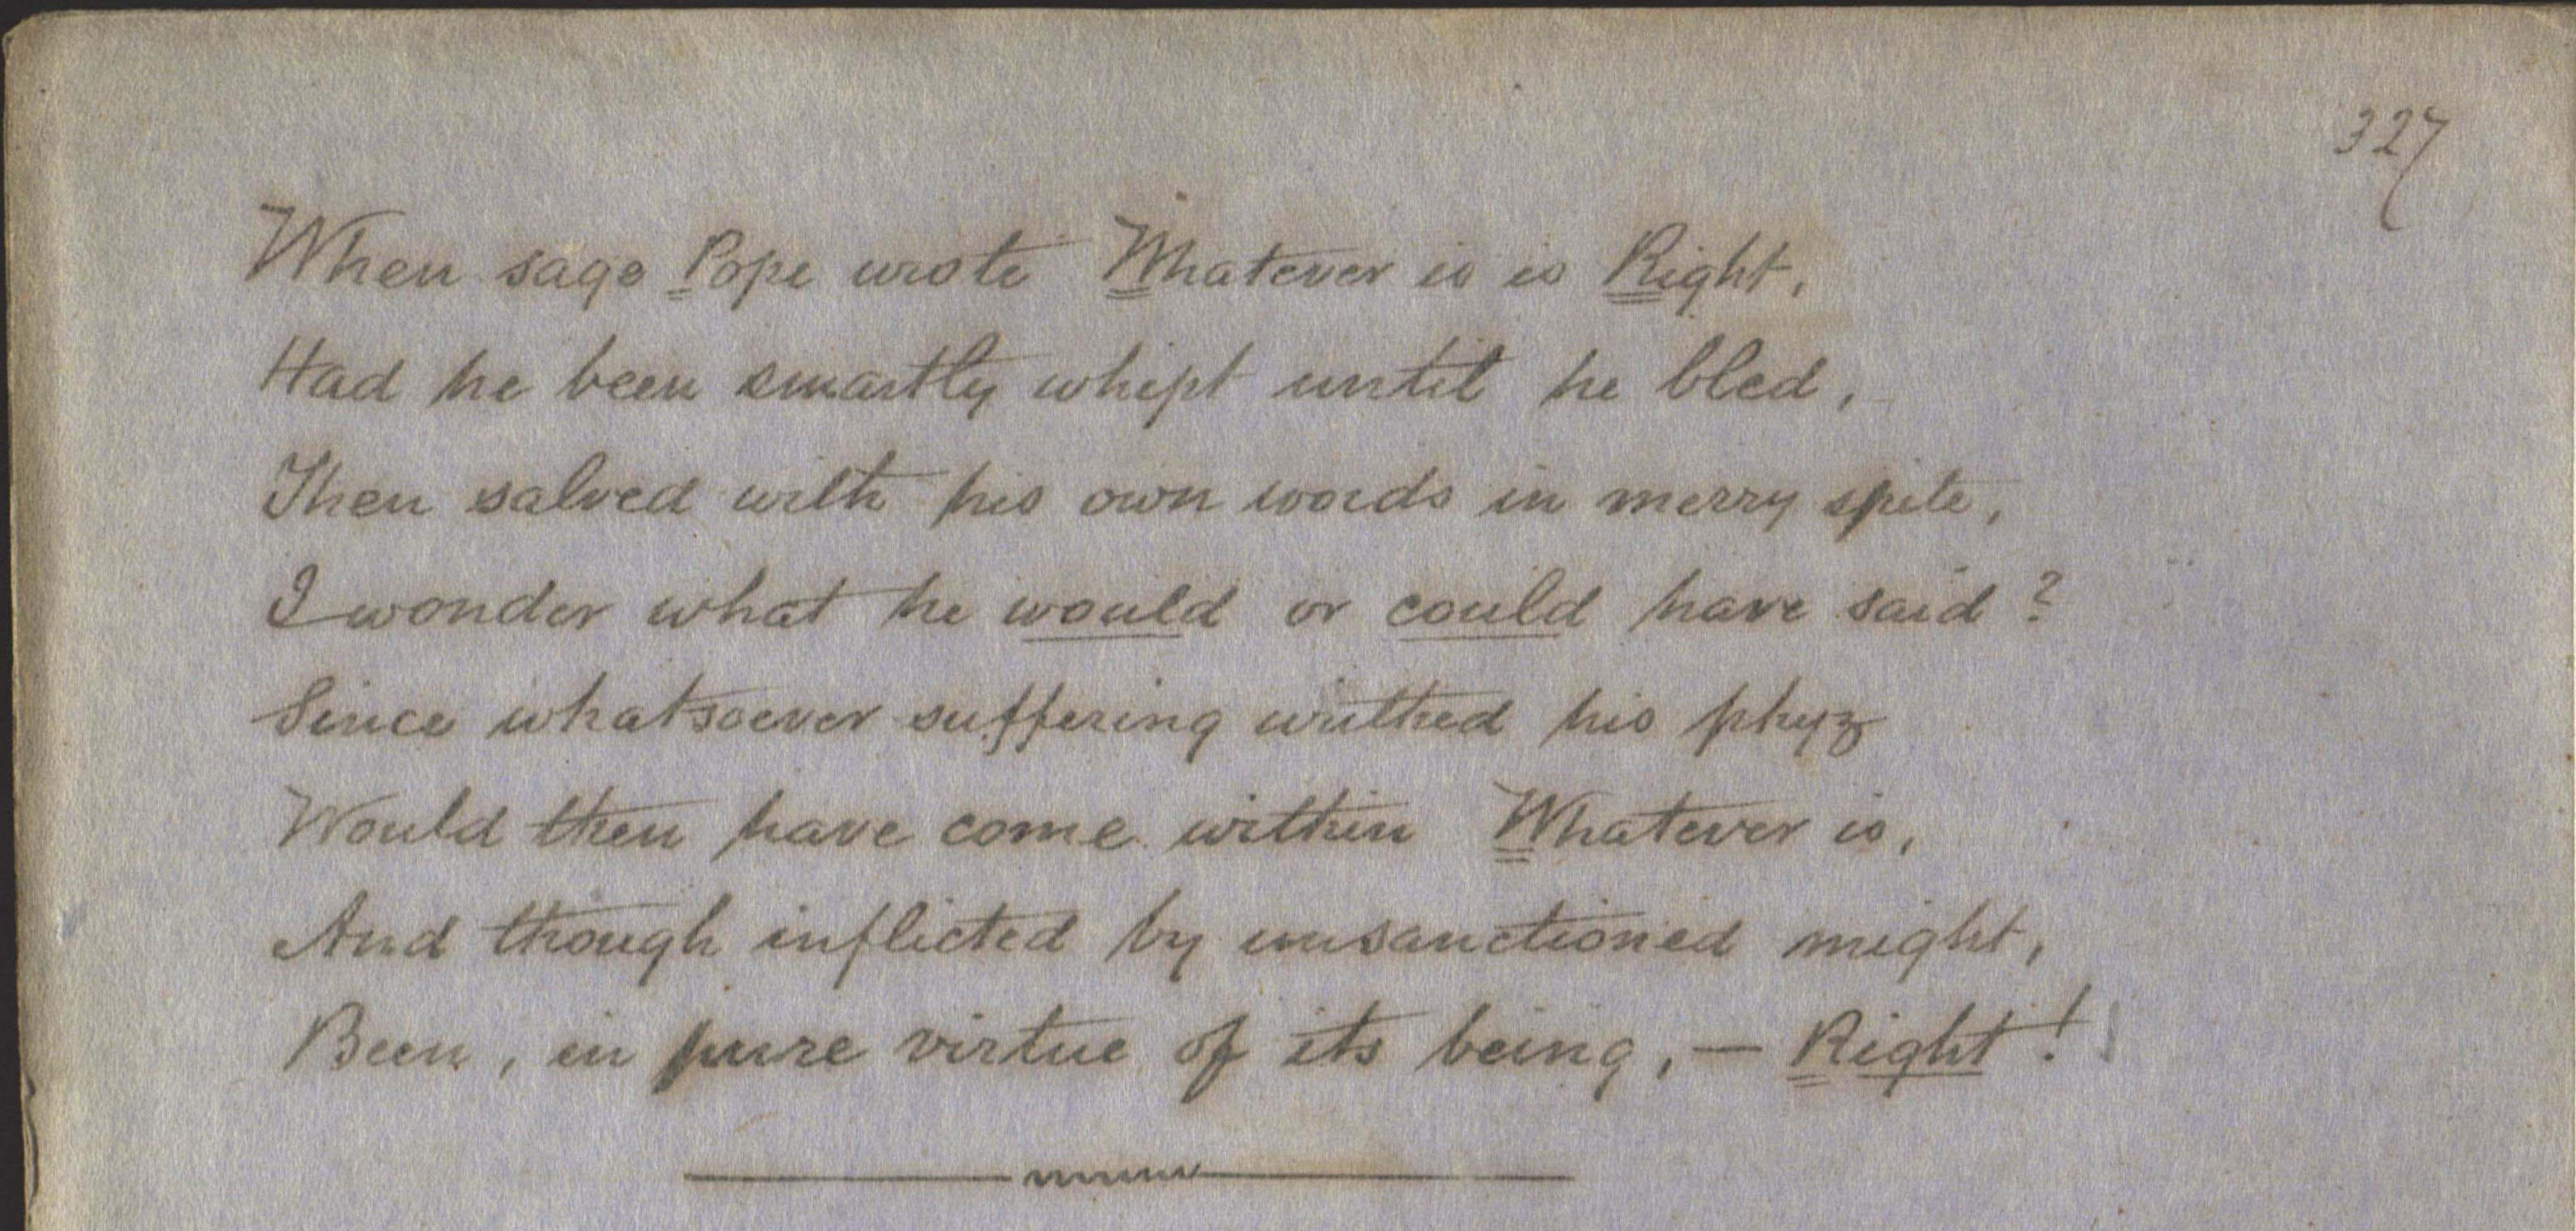 327
When sage Pope wrote Whatever is is Right,
Had he been smartly whipt until he bled,
Then salved with his own words in merry spite,
I wonder what he would or could have said?
Since whatsoever suffering writhed his phyz
Would then have come within Whatever is,
And though inflicted by unsanctioned might,
Been, in pure virtue of its being, — Right!